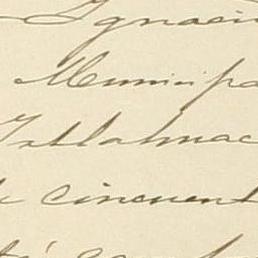 Ignacio
Municipa
Ixtlahuac
de cincuent